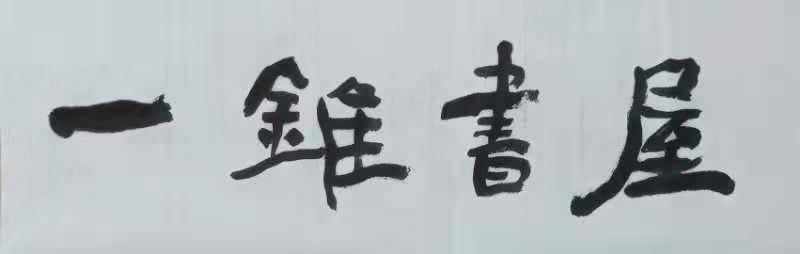 一錐書屋